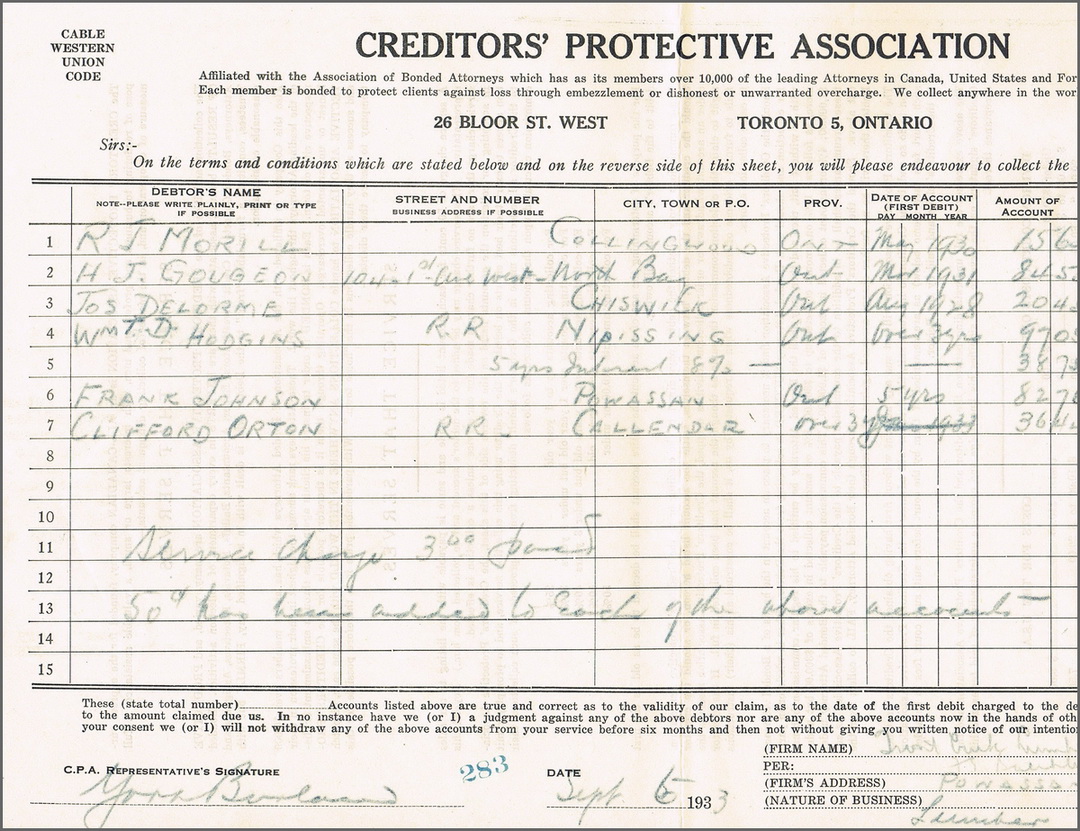 CABLE
WESTERN
UNION
CODE
CREDITORS' PROTECTIVE ASSOCIATION
Affiliated with the Association of Bonded Attorneys which has as its members over 10,000 of the leading Attorneys in Canada, United States and For
Each member is bonded to protect clients against loss through embezzlement or dishonest or unwarranted overcharge. We collect anywhere in the wor
26 BLOOR ST. WEST TORONTO 5, ONTARIO
Sirs:-
On the terms and conditions which are stated below and on the reverse side of this sheet, you will please endeavour to collect the
DEBTOR'S NAME STREET AND NUMBER CITY, TOWN OR P.O. PROV. DATE OF ACCOUNT AMOUNT OF
NOTE--PLEASE WRITE PLAINLY, PRINT OR TYPE BUSINESS ADDRESS IF POSSIBLE (FIRST DEBIT) ACCOUNT
IF POSSIBLE DAY MONTH YEAR
1 R J MORILL COLLINGWOOD ONT May 1930 156
2 H J. GOUGEON 104-1st Ave West - North Bay Ont Mar 1931 845
3 JOS DELORME CHISWICK Ont Aug 1928 204
4 Wm T. D. HODGINS R.R NIPISSING Ont over 3 yrs 970
5 5 yrs Interest 8% — — 387
6 FRANK JOHNSON POWASSAN Ont 5 yrs 827
7 CLIFFORD ORTON R R. CALLENDER over 3 364
8
9
10
11 Service Charge 3.00 paid
12
13 50¢ has been added to Each of the above accounts —
14
15
These (state total number) Accounts listed above are true and correct as to the validity of our claim, as to the date of the first debit charged to the de
to the amount claimed due us. In no instance have we (or I) a judgment against any of the above debtors nor are any of the above accounts now in the hands of oth
your consent we (or I) will not withdraw any of the above accounts from your service before six months and then not without giving you written notice of our intentio
(FIRM NAME) Trout Creek Lumb
PER:
C.P.A. REPRESENTATIVE'S SIGNATURE 283 DATE Sept 5 1933
(FIRM'S ADDRESS) POWASSA
(NATURE OF BUSINESS) Lumber